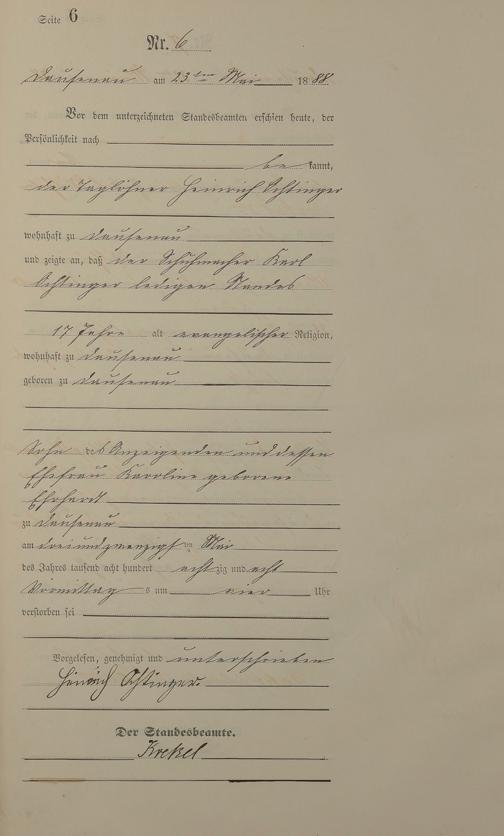 Seite 6
Nr. 6
Dausenau am 23ten Mai 1888
Vor dem unterzeichneten Standesbeamten erschien heute, der
Persönlichkeit nach
be kannt,
der Taglöhner Heinrich Ochtinger
wohnhaft zu Dausenau
und zeigte an, daß der Schuhmacher Karl
Ochtinger ledigen Standes
17 Jahre alt evangelischer Religion,
wohnhaft zu Dausenau
geboren zu Dausenau
Sohn des Anzeigenden und dessen
Ehefrau Karoline geborene
Ehrhardt
zu Dausenau
am dreiundzwanzigsten Mai
des Jahres tausend acht hundert acht zig und acht
Vormittag s um vier Uhr
verstorben sei
Vorgelesen, genehmigt und unterschrieben
Heinrich Ochtinger.
Der Standesbeamte.
Krekel